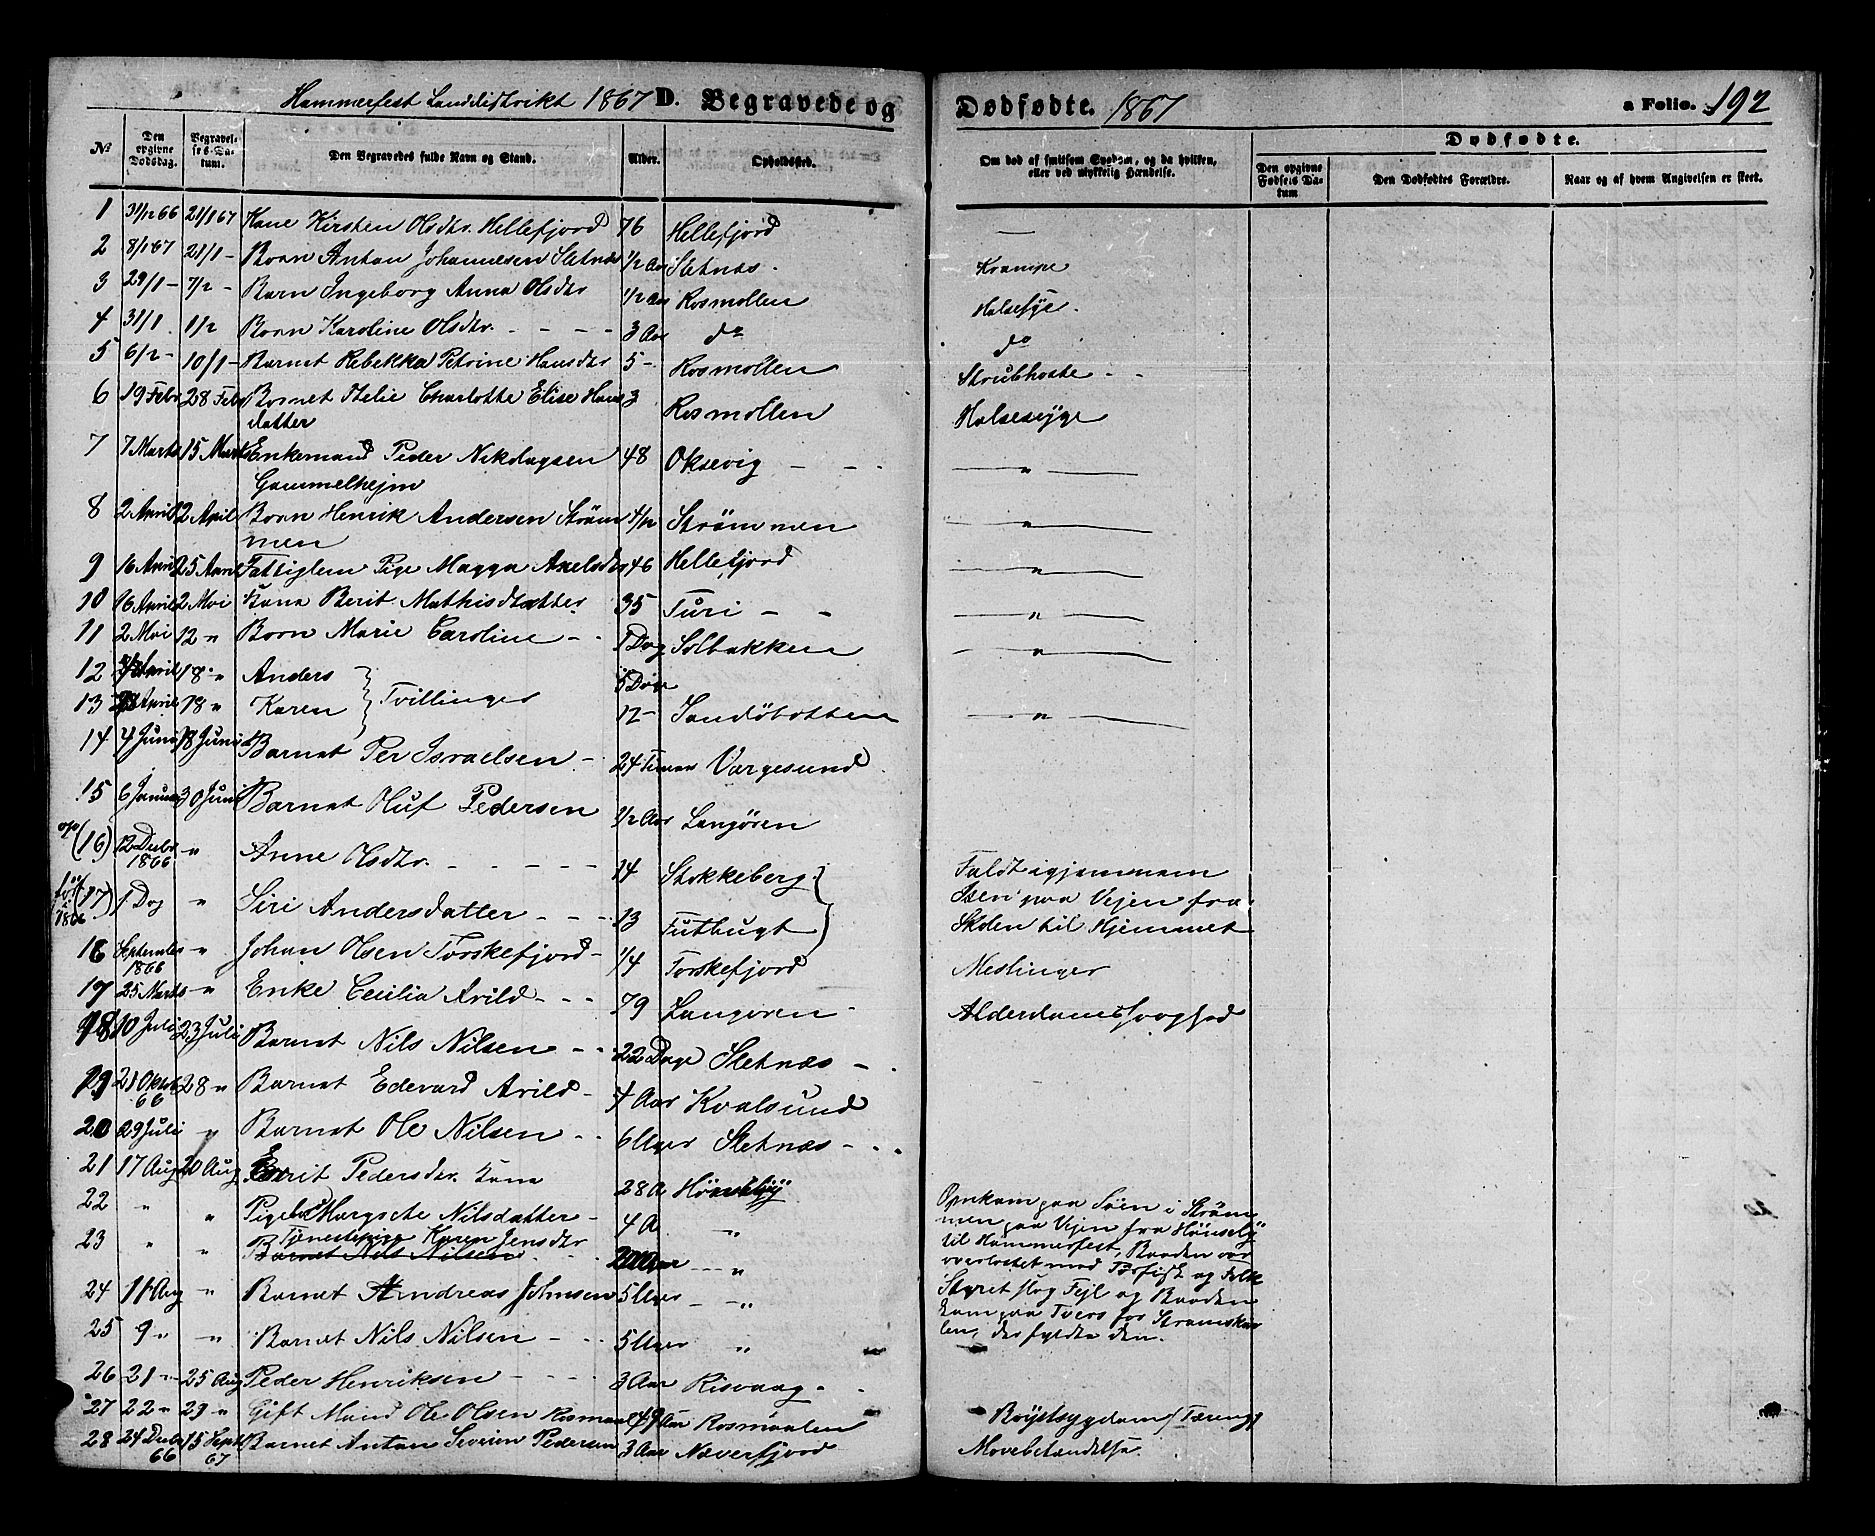 Hammerfest Landdistrikt 1867 D. Begravede og Dødfødte. 1867 a Folio. 192
№ Den opgivne Dødsdag. Begravelses-Datum. Den Begravedes fulde Navn og Stand. Alder. Opholdssted. Om død af smitsom Sygdom, og da hvilken, eller ved ulykkelig Hændelse. Dødfødte.
Den opgivne Fødsels Datum Den Dødfødtes Forældre. Naar og af hvem Angivelsen er skeet.
1 31/12 66 21/1 67 Kone Kirsten Olsdtr. Hellefjord 76 Hellefjord —
2 8/1 67 21/1 - Barn Anton Johannesen Sletnæs 1/2 Aar Sletnæs. Krampe
3 29/1 - 7/2 - Barn Ingeborg Anna Olsdtr 1/2 Aar Rosmollen Halssyge.
4 31/1 1/2 Barn Karoline Olsdtr. - - - 3 Aar do do
5 6/2 - 10/1 - Barnet Rebekka Petrine Hansdtr 5 - Rosmollen Strubhoste - -
6 19 Febr 28 Febr Barnet Charlotte Elise Hans 3 Rosmollen Halsesyge
datter
7 7 Marts 15 Marts Enkemand Peder Nikolaysen 48 Oksevig - - - — " —
Gammelhejm
8 2 April 12 April Barn Henrik Andersen Strøm 4/12 Strømmen — " —
men
9 16 April 25 April Fattiglem Pige Magga Axelsdtr 46 Hellefjord — " —
10 16 April 2 Mai Kona Berit Mathisdatter 35 Turi - - — " —
11 2 Mai 12 " Barn Marie Caroline - - 1 Dag Solbakken — " —
12 April 18 " Anders } 5 Døgn
13 April 18 " Karen } Tvillinger 12 - Sandøbotten — " —
14 4 Juni 18 Juni Barnet Per Israelsen - 24 Timer Vargesund
15 6 Januar 30 Juni Barnet Oluf Pedersen 1/2 Aar Langøren
(16) 12 Decbr 1866 " Anne Olsdtr. - - - - 14 Stokkeberg } Faldt igjennem
(17) 1 Dag " Siri Andersdatter - - - 13 Futbugt } Isen paa Vejen fra
1866 Skolen til Hjemmet
16 September 1866 " Johan Olsen Torskefjord - 1/4 Torskefjord Meslinger
17 25 Marts " Enke Cecilia Arild - - - 79 Langøren - Alderdomssvaghed
18 10 Juli 23 Juli Barnet Nils Nilsen - - 22 Dage Sletnæs -
19 28 Oktbr 66 28 " Barnet Edevard Arild - 4 Aar Kvalsund
20 29 Juli " Barnet Ole Nilsen - - 6 Uger Sletnæs - - .
21 17 Aug 20 Aug Berit Pedersdtr. Kona 28 A
22 " " Margrete Nilsdatter - 4 A " Omkom paa Søen i Strøm
men paa Vejen fra Hønseby
23 " " Tjenestepige Karen Jensdtr " til Hammerfest, Baaden var
Barnet Nils Nilsen overlastet med Tørfisk og Folk
24 11 Aug " Barnet Andreas Johnsen 5 Uger - " Styret slog Fejl og Baaden
kom paa Tvers for Strømskav
25 9 " " Barnet Nils Nilsen - - 5 Uger " len, der fyldte den.
26 21 " 25 Aug Peder Henriksen - - - - 3 Aar Risvaag - -
27 22 " 29 " Gift Mand Ole Olsen Rosmaal 49 Aar Rosmaalen Brystsygdom (Tæring)
28 24 Decbr 66 15 Septr 67 Barnet Anton Severin Pedersen 3 Aar Næverfjord Mavebetændelse.